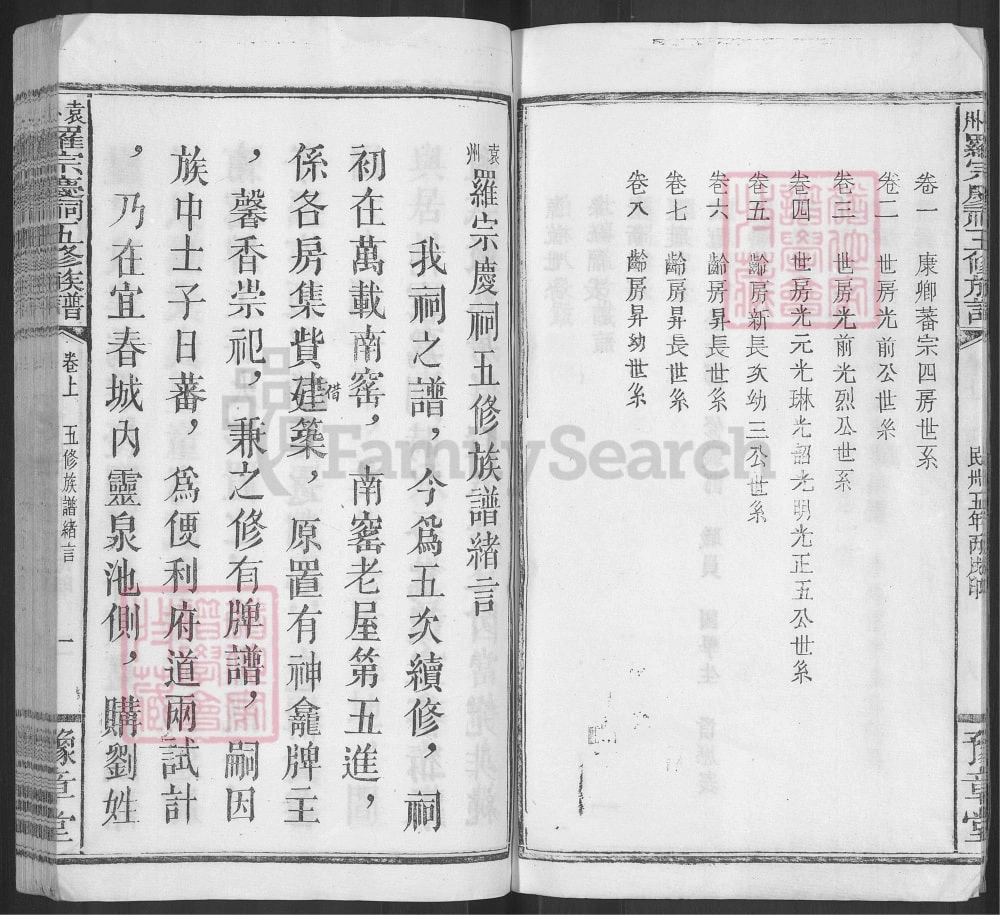 卷一 康卿蕃宗四房世系
卷二 世房光前公世系
卷三 世房光前光烈公世系
卷四 世房光元光琳光韶光明光正五公世系
卷五 齡房新長次幼三公世系
卷六 齡房昇長世系
卷七 齡房昇長世系
卷八 齡房昇幼世系
民卅五年丙戌印
豫章堂
袁州羅宗慶祠五修族譜緒言
我祠之譜，今爲五次續修，祠
初在萬載南窰，南窰老屋第五進，
係各房集貲建築，原置有神龕牌主
借
，馨香崇祀，兼之修有牌譜，嗣因
族中士子日蕃，爲便利府道兩試計
，乃在宜春城內靈泉池側，購劉姓
羅宗慶祠五修族譜
卷上 五修族譜緒言 一
豫章堂
FamilySearch